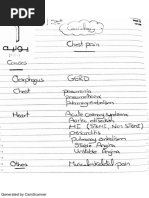 Cardiology
Chest pain
يونيه
Causes
Oesophagus GORD
Chest pneumonia
pneumothorax
Pulmonary embolism
Heart Acute Coronary Syndrome
Aortic dissection
MI (STEMI, Non STEMI)
pericarditis
Pulmonary embolism
Stable Angina
Unstable Angina
Others Musculoskeletal pain
Generated by CamScanner